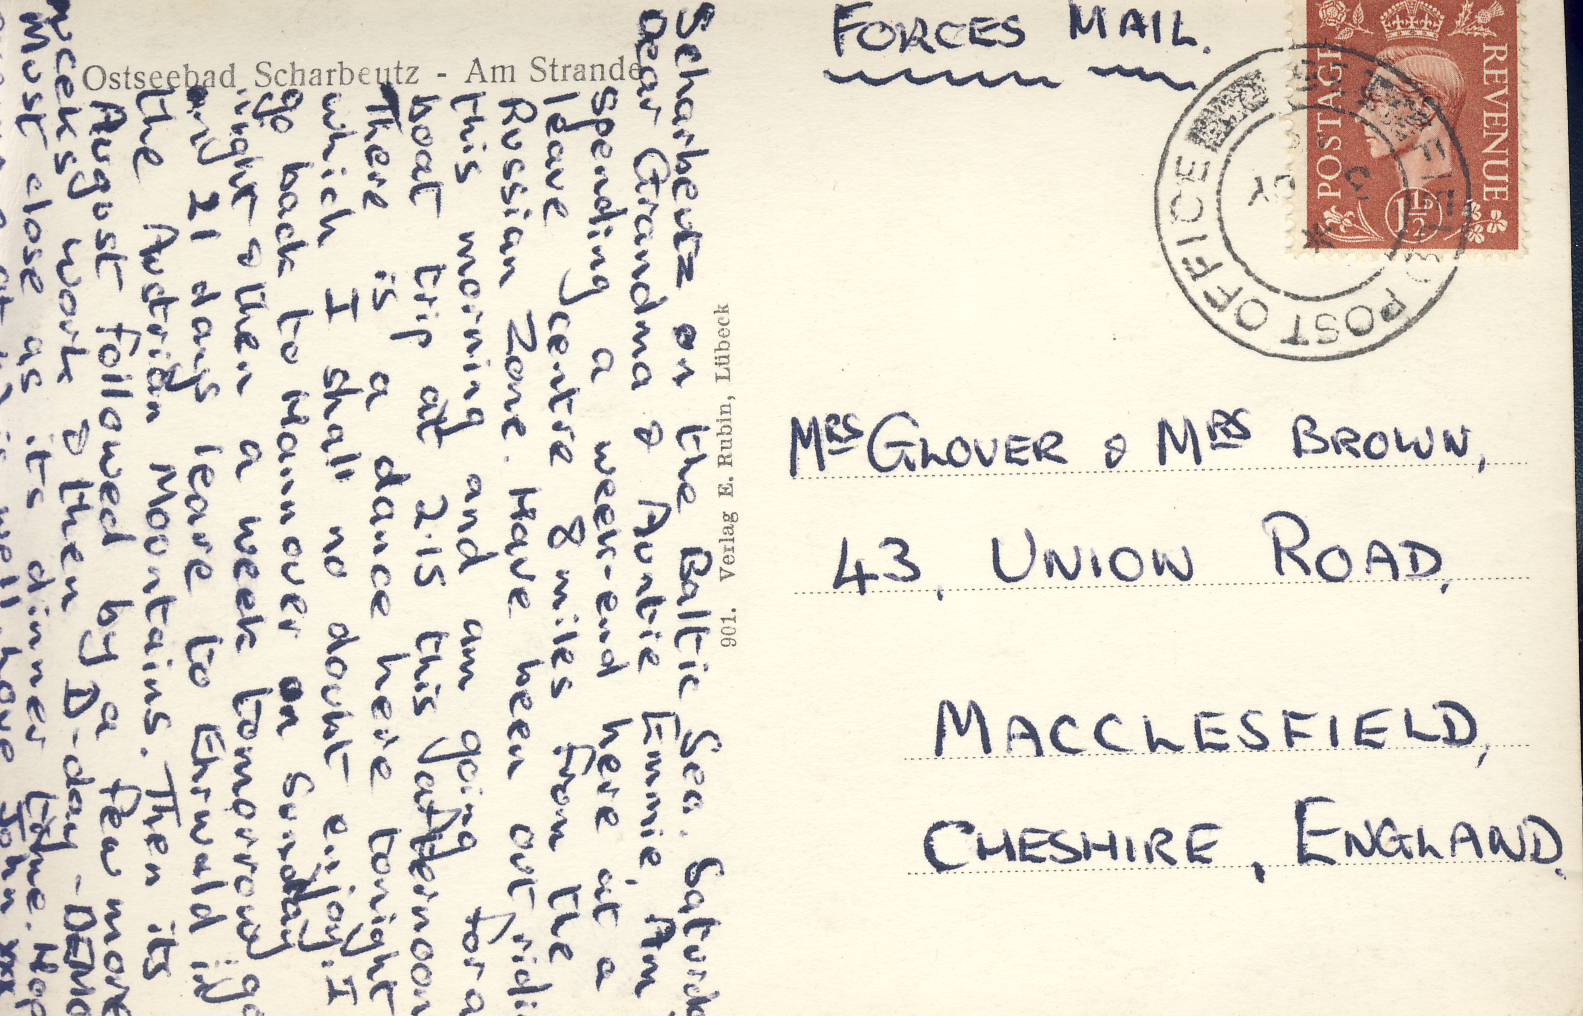 Ostseebad Scharbeutz - Am Strande
FORCES MAIL.
POSTAGE
REVENUE
1½D
FIELD POST OFFICE
Scharbeutz on the Baltic Sea. Saturd
Dear Grandma & Auntie Emmie, Am
spending a week-end here at a
leave centre 8 miles from the
Russian Zone. Have been out ridi
this morning and am going for a
boat trip at 2.15 this afternoon
There is a dance here tonight
which I shall no doubt enjoy. I
go back to Hannover on Sunday
night & then a week tomorrow go
on 21 days leave to Ehrwald in
the Austrian Mountains. Then its
August followed by a few more
weeks work & then D-day - DEMO
Must close as its dinner time. Hop
well. love John xxx
901. Verlag E. Rubin, Lübeck
MRS GLOVER & MRS BROWN,
43, UNION ROAD,
MACCLESFIELD,
CHESHIRE, ENGLAND.